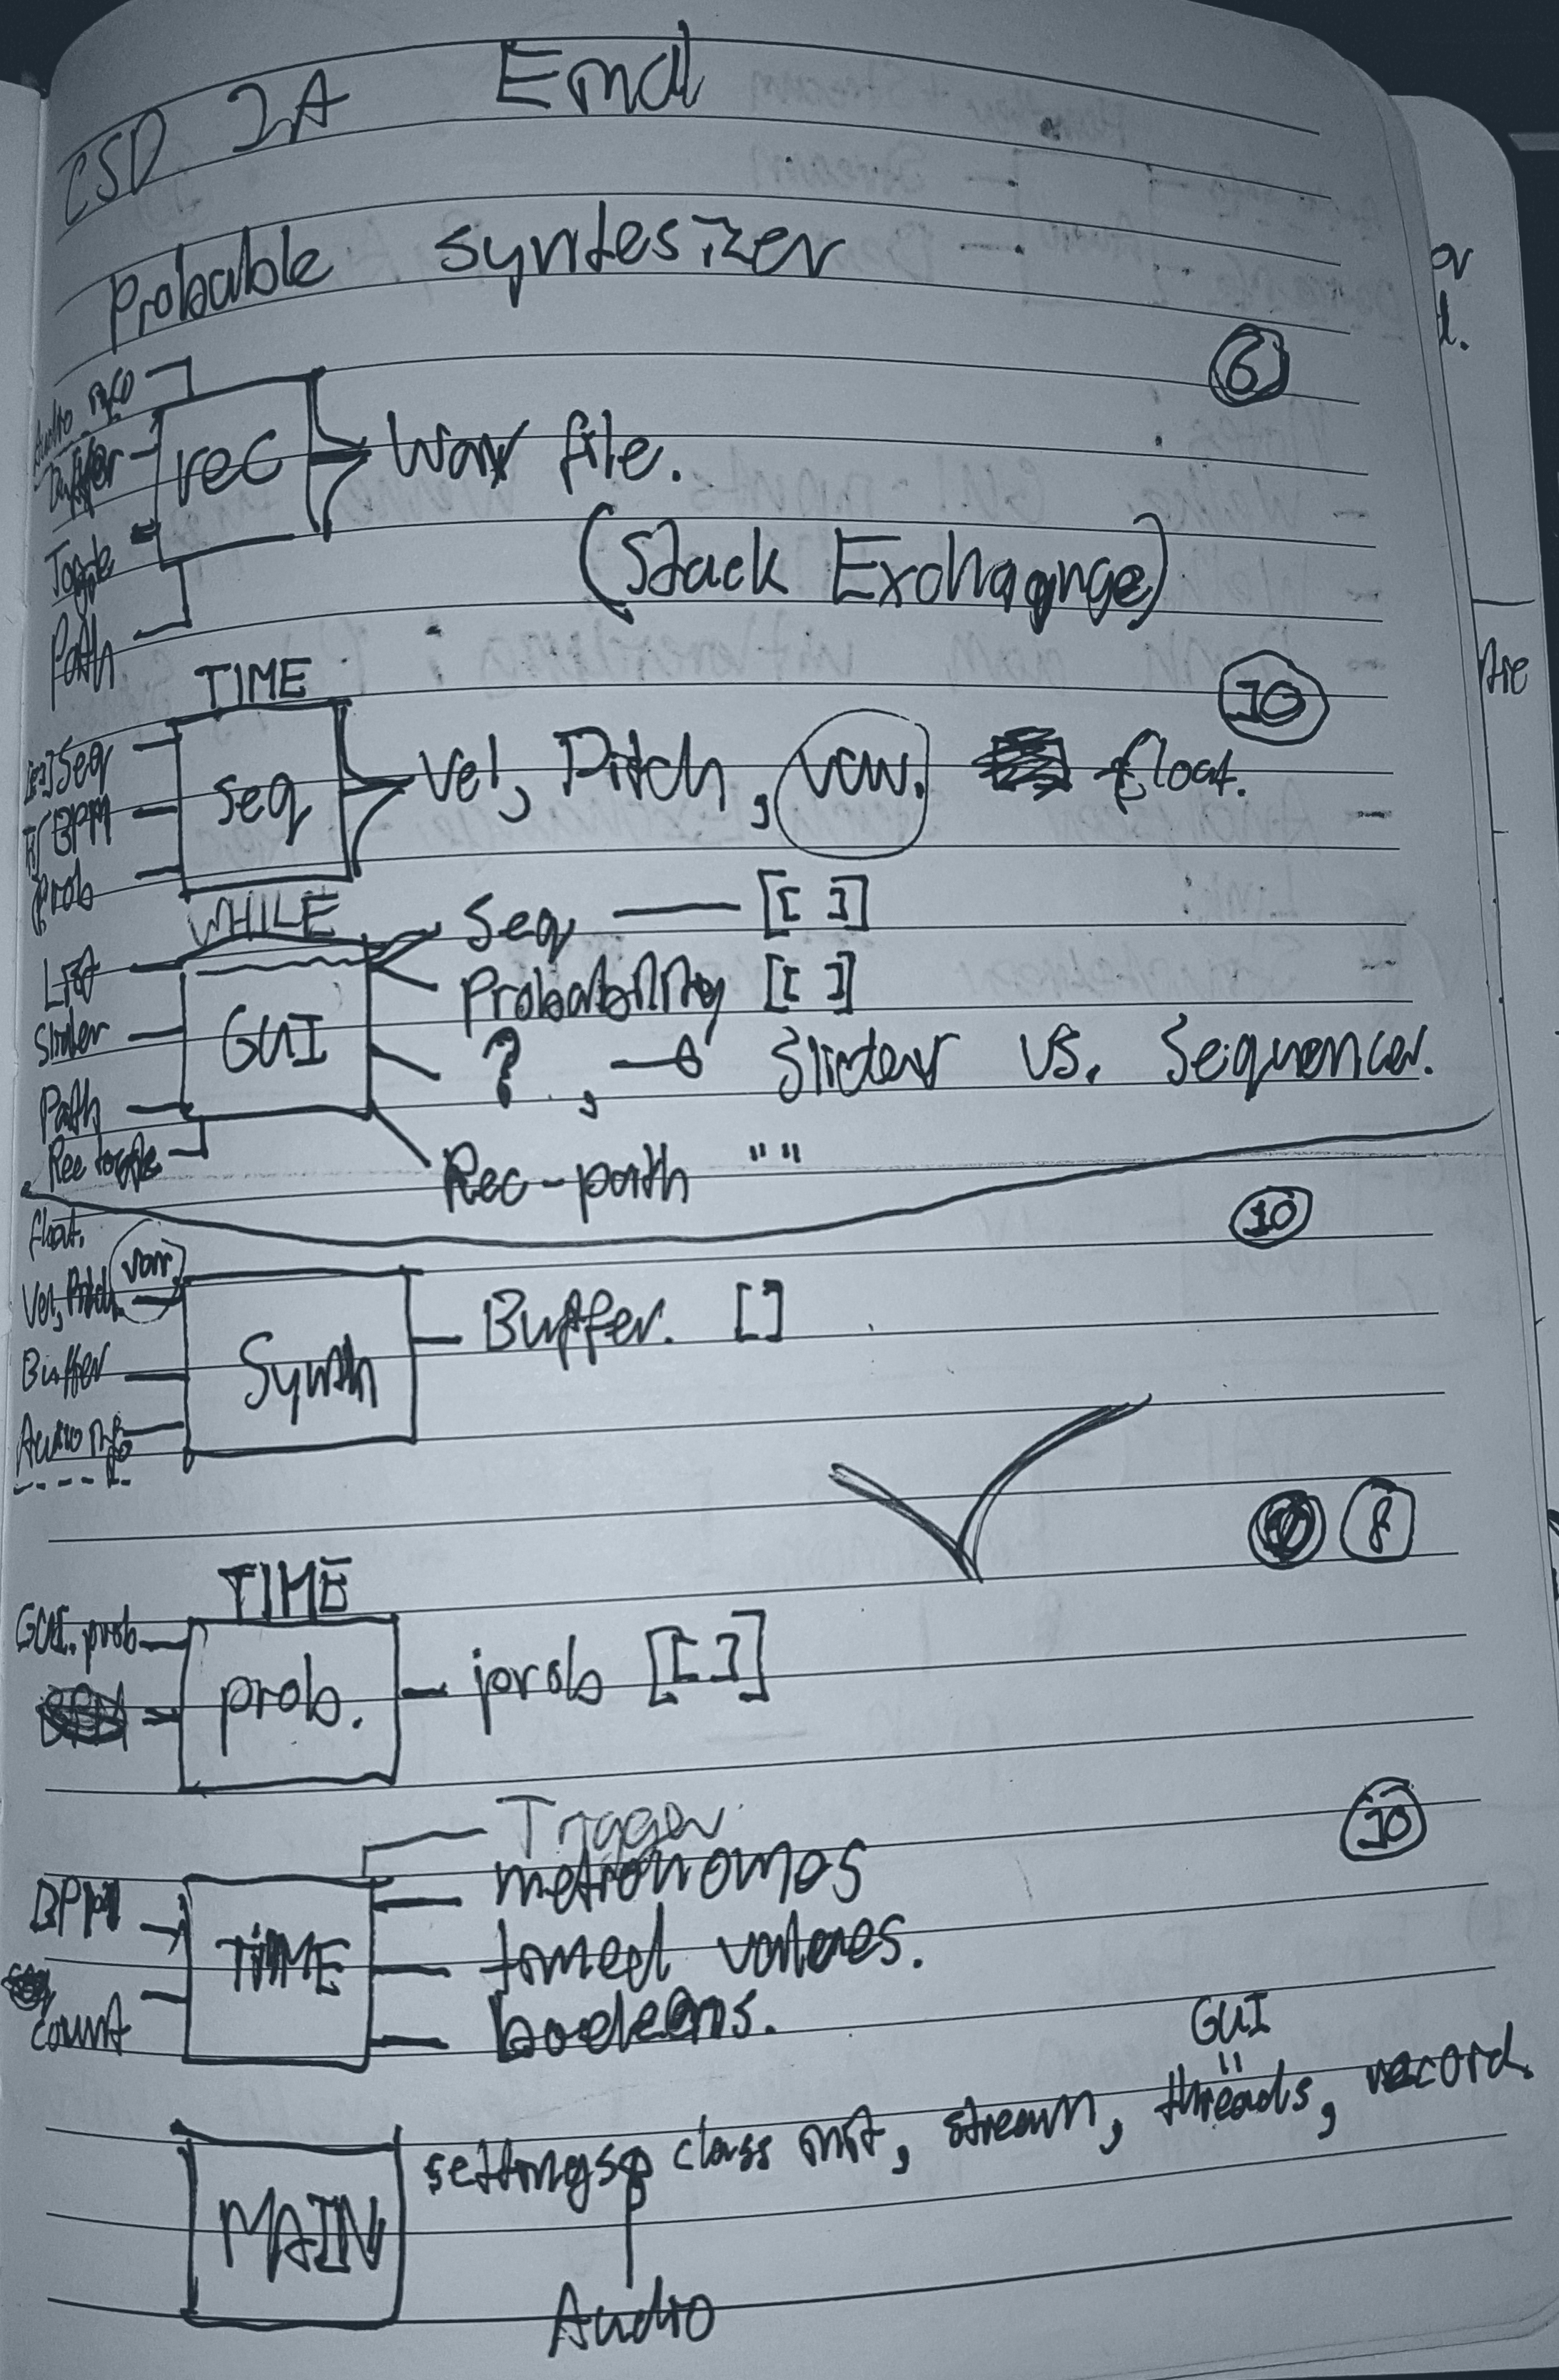 CSD 2A Eind
Probable syntesizer
6
Audio info
Buffer
rec
Wav file.
Toggle
(Stack Exchagnge)
Path
TIME
10
Seq
BPM
Prob
seq
Vel, Pitch, var. float.
WHILE
List
Slider
Path
Rec toggle
GUI
Seq — [[ ]]
Probability [[ ]]
? , Slider vs. Sequencer.
Rec-path ""
10
float.
Vel, Pitch, var
Buffer
Audio info
Synth
Buffer. []
8
TIME
GUI. prob
prob.
prob [[ ]]
10
Trigger
BPM
count
TIME
metronomes
timed values.
booleans.
GUI
"
MAIN
settings, class init, stream, threads, record
Audio